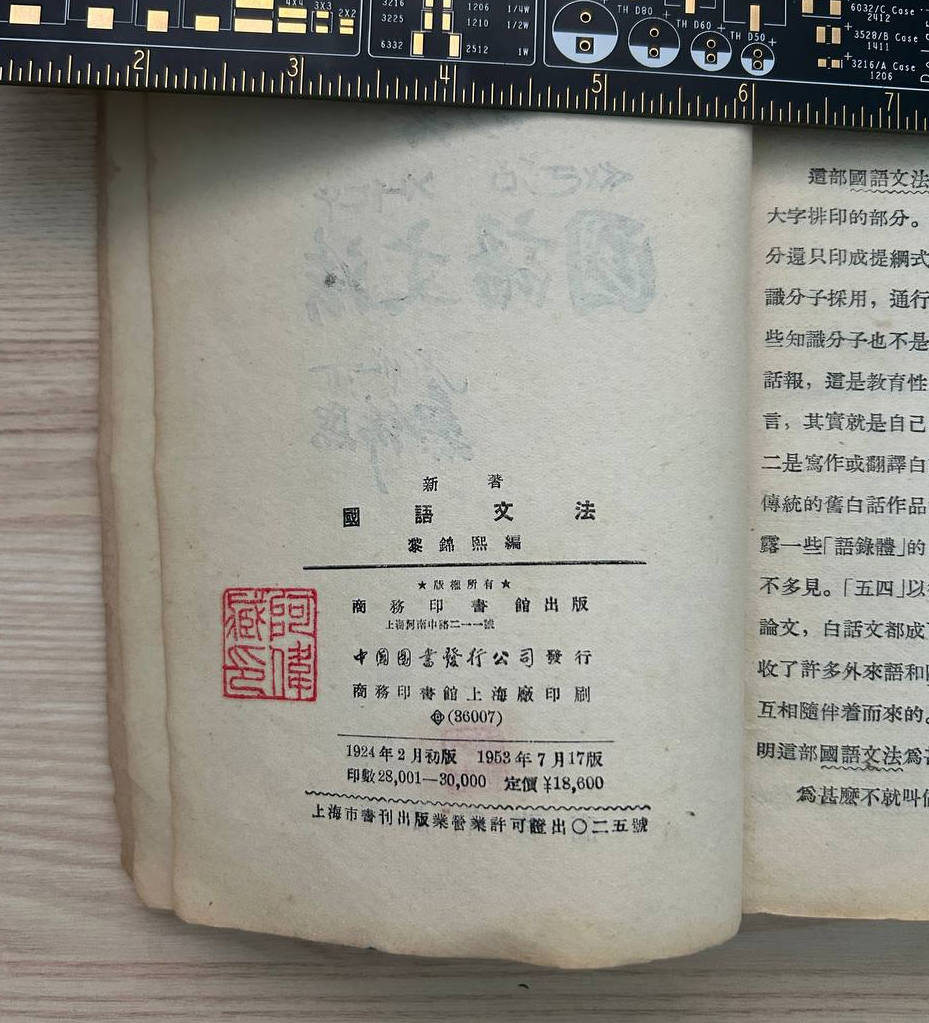 3216
3225
6332
4X4
3X3
2X2
1206 1/4W
1210 1/2W
2512 1W
TH D80
TH D60
TH D50
6032/C Case
2412
3528/B Case
1411
3216/A Case
1206
2 3 4 5 6 7
國語文法
新著
國語文法
黎錦熙編
★版權所有★
商務印書館出版
上海河南中路二一一號
中國圖書發行公司發行
商務印書館上海廠印刷
(36007)
1924年2月初版 1953年7月17版
印數28,001—30,000 定價¥18,600
上海市書刊出版業營業許可證出〇二五號
阿偉
藏印
這部國語文法
大字排印的部分。
分還只印成提綱式
識分子採用,通行
些知識分子也不是
話報,這是教育性
言,其實就是自己
二是寫作或翻譯白
傳統的舊白話作品
露一些「語錄體」的
不多見。「五四」以
論文,白話文都成
收了許多外來語和
互相隨伴着而來的。
明這部國語文法爲
爲甚麼不就叫